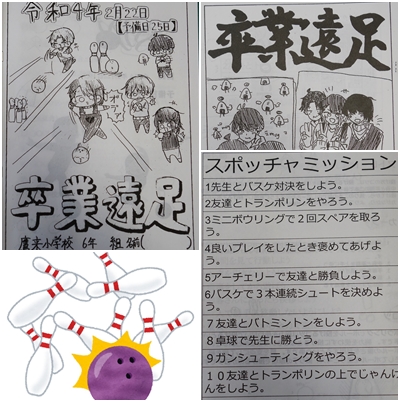 令和4年 2月22日
【予備日25日】
卒業遠足
鷹来小学校 6年 組
卒業遠足
スポッチャミッション
1先生とバスケ対決をしよう。
2友達とトランポリンをやろう。
3ミニボウリングで2回スペアを取ろう。
4良いプレイをしたとき褒めてあげよう。
5アーチェリーで友達と勝負しよう。
6バスケで3本連続シュートを決めよう。
7友達とバトミントンをしよう。
8卓球で先生に勝とう。
9ガンシューティングをやろう。
10友達とトランポリンの上でじゃんけんをしよう。